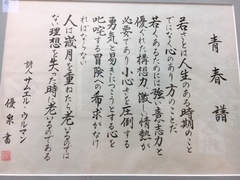 青春譜
若さとは人生のある時期のこと
でなく心のあり方のことだ
若くあるためには強い意志力と
優れた構想力激しい情熱が
必要であり小心さを圧倒する
勇気と易きにつこうとする心を
叱咤する冒険への希求がなけ
ればならない
人は歳月を重ねたから老いるのでは
ない理想を失った時に老いるのである
詩人サムエル・ウルマン
優泉書